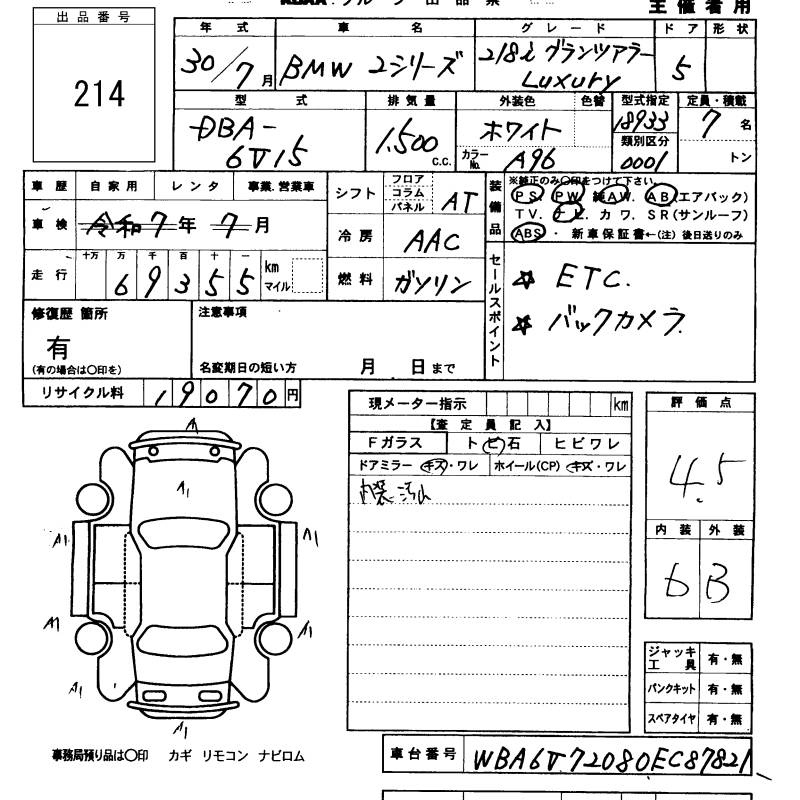 出品票
主催者用
出品番号
214
年式 車名 グレード ドア 形状
30/7月 BMW 2シリーズ 218i グランツアラー Luxury 5
型式 排気量 外装色 色替 型式指定 定員・積載
DBA-6V15 1,500 c.c. ホワイト 18933 7名
カラーNo. A96 類別区分 0001 トン
車歴 自家用 レンタ 事業.営業車
車検 令和7年7月
走行 十万 万 千 百 十 一
69355 km マイル
シフト フロア コラム パネル AT
冷房 AAC
燃料 ガソリン
装備品
※純正のみ〇印をつけて下さい。
PS. PW. 純AW. AB.(エアバック)
TV. ナビ. カワ. SR(サンルーフ)
ABS ・ 新車保証書←(注) 後日送りのみ
セールスポイント
☆ ETC.
☆ バックカメラ.
修復歴 箇所
有
(有の場合は〇印を)
注意事項
名変期日の短い方 月 日まで
リサイクル料 19070円
現メーター指示 km
【査定員記入】
Fガラス トビ石 ヒビワレ
ドアミラー キズ・ワレ ホイール(CP) キズ・ワレ
内装汚れ
評価点
4.5
内装 外装
b B
ジャッキ工具 有・無
パンクキット 有・無
スペアタイヤ 有・無
A1
A1
A1
A1
A1
A1
A1
A1
事務局預り品は〇印 カギ リモコン ナビロム
車台番号 WBA6V72080EC87821